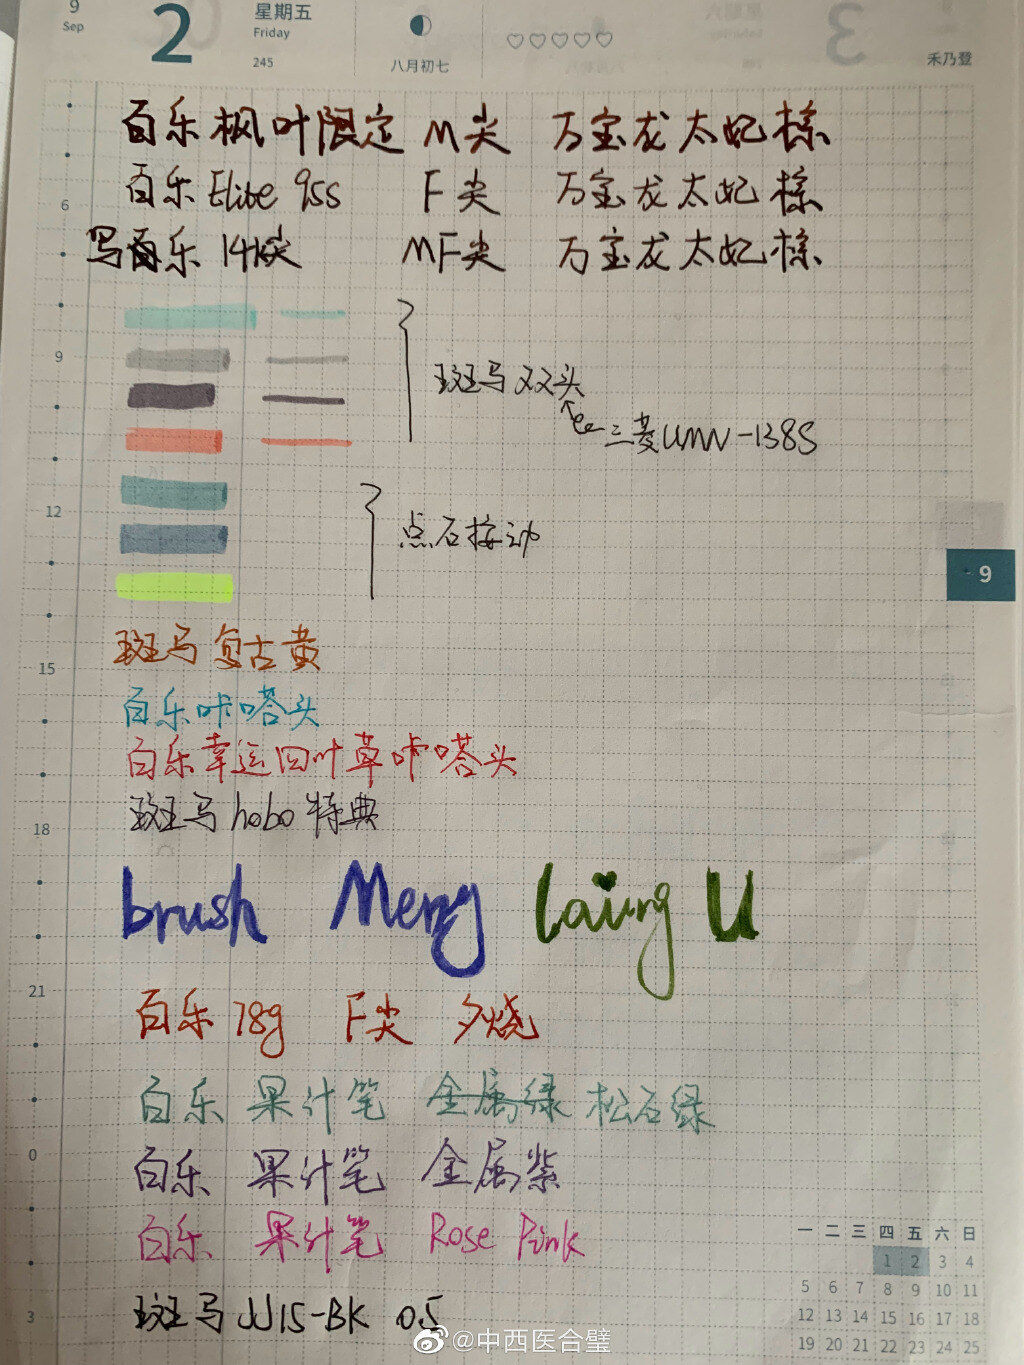 9
Sep
2
星期五
Friday
245
八月初七
♡♡♡♡♡
禾乃登
百乐 枫叶限定 M尖 万宝龙 太妃棕
百乐 Elite 95s F尖 万宝龙 太妃棕
6
写百乐 MF尖 万宝龙 太妃棕
9
斑马 双头
三菱UMN-138S
12
点石按动
9
斑马 复古黄
15
百乐咔嗒头
百乐幸运四叶草咔嗒头
斑马 hobo 特典
18
brush Meng Laiung U
21
百乐 78g F尖 夕烧
百乐 果汁笔 金属绿 松石绿
0
百乐 果汁笔 金属紫
百乐 果汁笔 Rose Pink
斑马 JJ15-BK 0.5
3
一 二 三 四 五 六 日
1 2 3 4
5 6 7 8 9 10 11
12 13 14 15 16 17 18
19 20 21 22 23 24 25
@中西医合璧